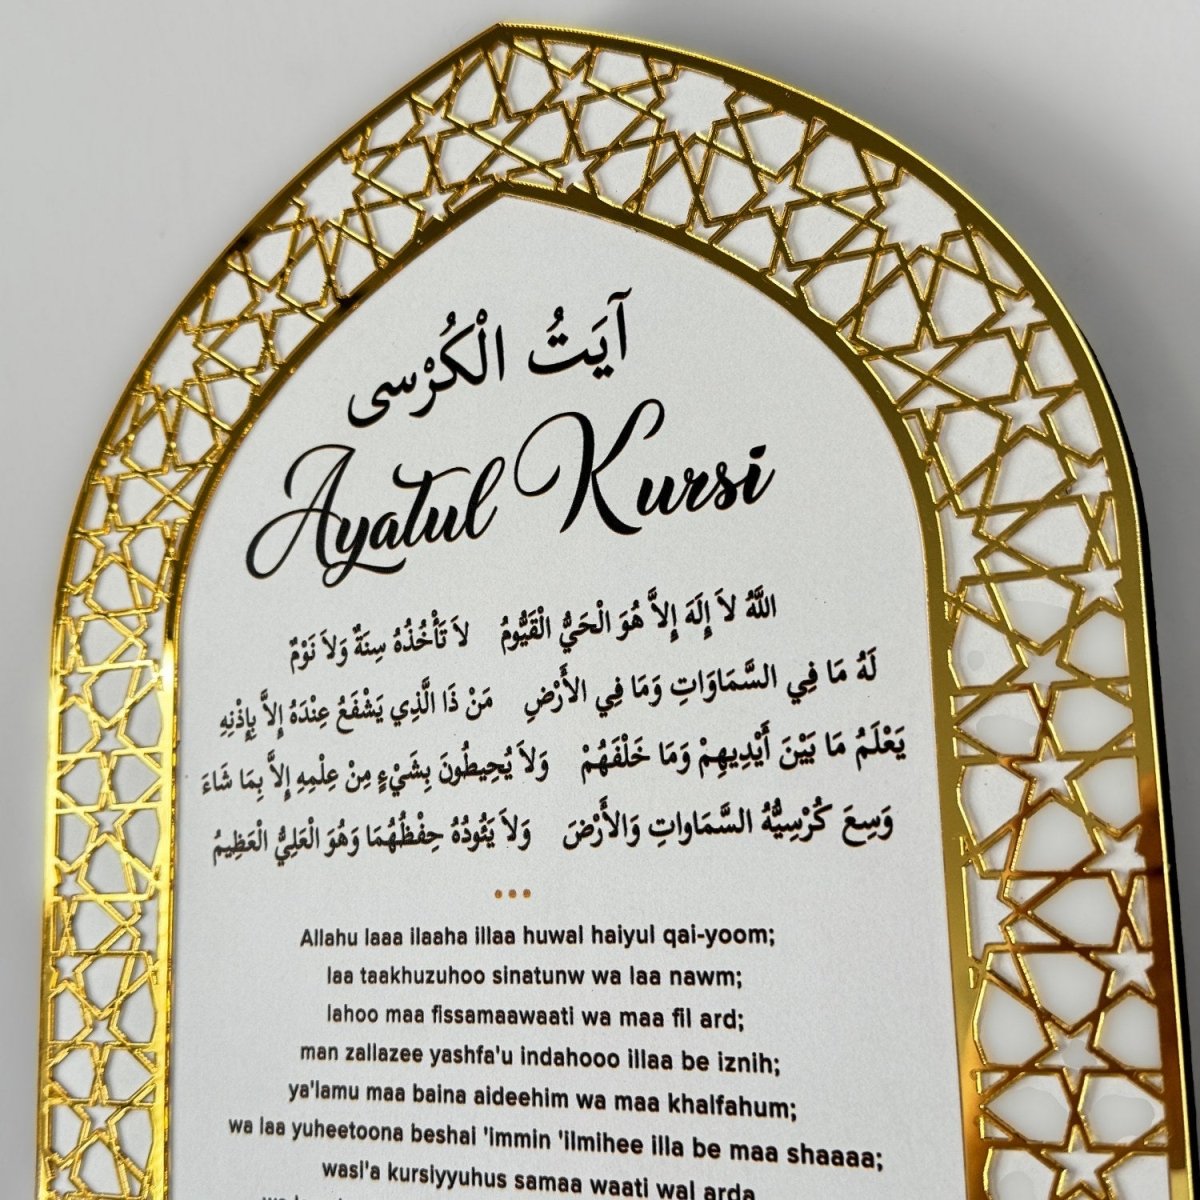 آيَتُ الْكُرْسى
Ayatul Kursi
اللَّهُ لاَ إِلَهَ إِلاَّ هُوَ الْحَيُّ الْقَيُّومُ لاَ تَأْخُذُهُ سِنَةٌ وَلاَ نَوْمٌ
لَهُ مَا فِي السَّمَاوَاتِ وَمَا فِي الأَرْضِ مَنْ ذَا الَّذِي يَشْفَعُ عِنْدَهُ إِلاَّ بِإِذْنِهِ
يَعْلَمُ مَا بَيْنَ أَيْدِيهِمْ وَمَا خَلْفَهُمْ وَلاَ يُحِيطُونَ بِشَيْءٍ مِنْ عِلْمِهِ إِلاَّ بِمَا شَاءَ
وَسِعَ كُرْسِيُّهُ السَّمَاواتِ وَالأَرْضَ وَلاَ يَئُودُهُ حِفْظُهُمَا وَهُوَ الْعَلِيُّ الْعَظِيمُ
Allahu laaa ilaaha illaa huwal haiyul qai-yoom;
laa taakhuzuhoo sinatunw wa laa nawm;
lahoo maa fissamaawaati wa maa fil ard;
man zallazee yashfa'u indahooo illaa be iznih;
ya'lamu maa baina aideehim wa maa khalfahum;
wa laa yuheetoona beshai 'immin 'ilmihee illa be maa shaaaa;
wasi'a kursiyyuhus samaa waati wal arda